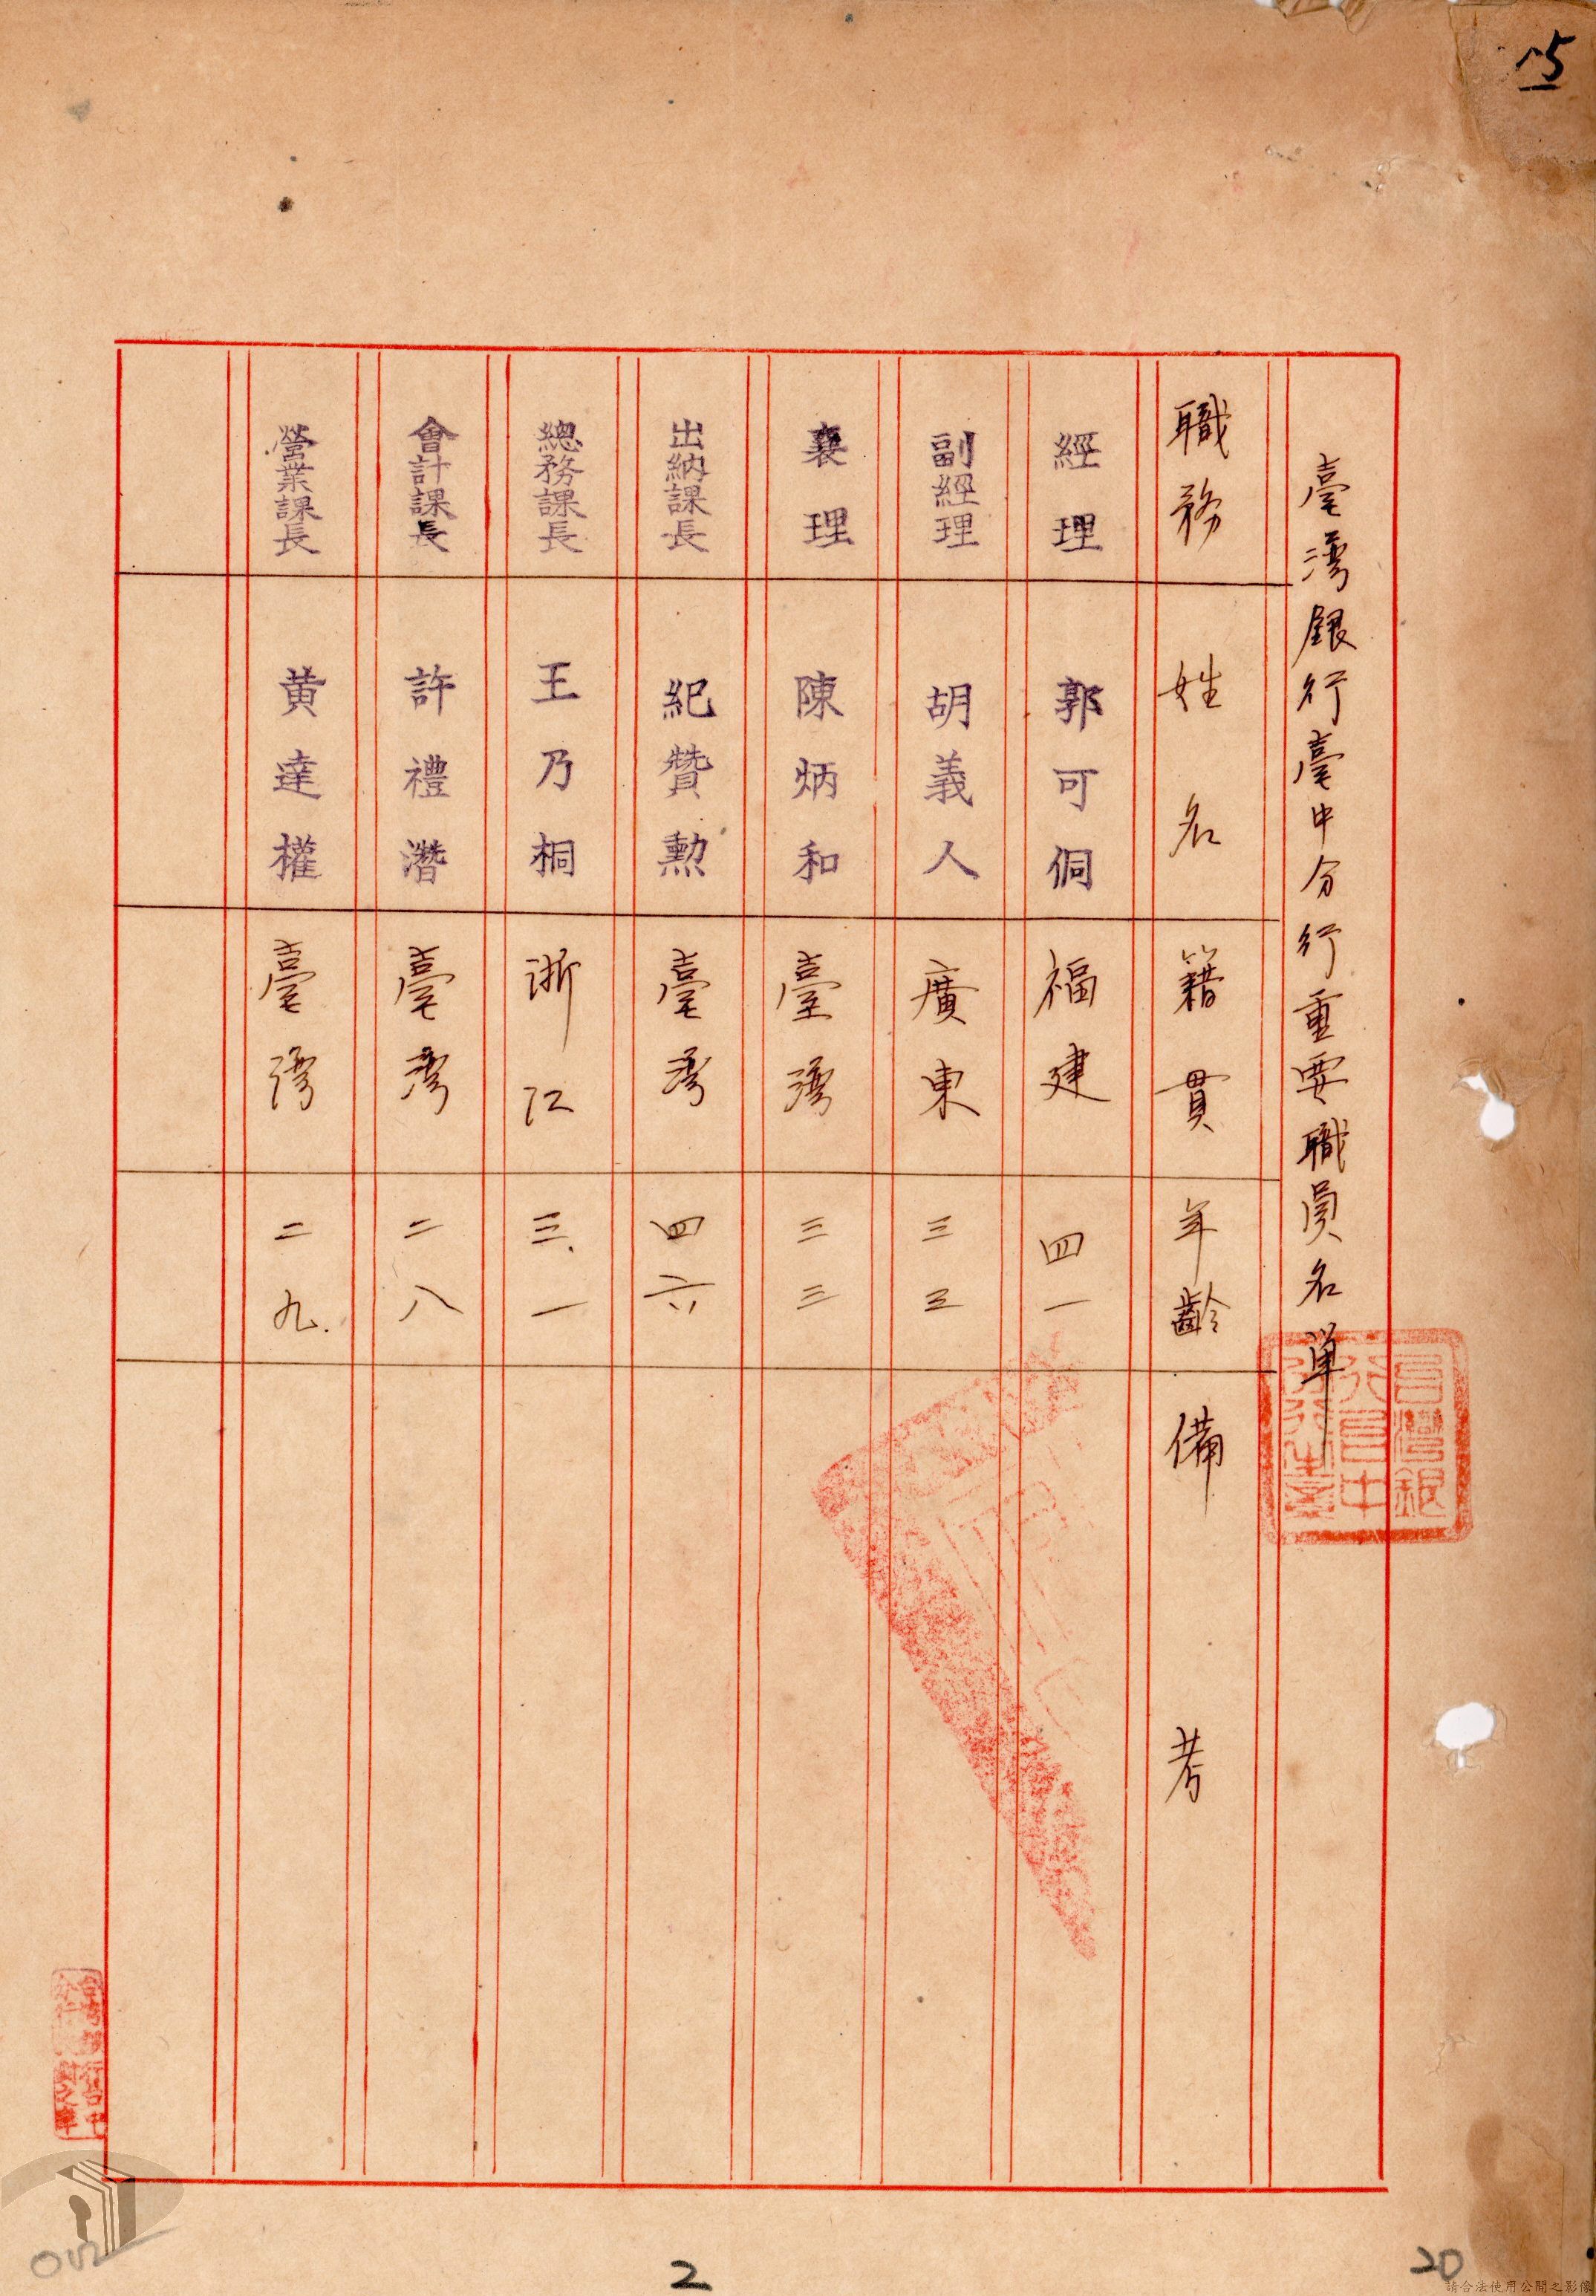 臺灣銀行臺中分行重要職員名單
職務 姓名 籍貫 年齡 備考
經理 郭可侗 福建 四一
副經理 胡義人 廣東 三三
襄理 陳炳和 臺灣 三三
出納課長 紀贊勲 臺灣 四六
總務課長 王乃桐 浙江 三一
會計課長 許禮潛 臺灣 二八
營業課長 黃達權 臺灣 二九
2
20
請合法使用公開之影像